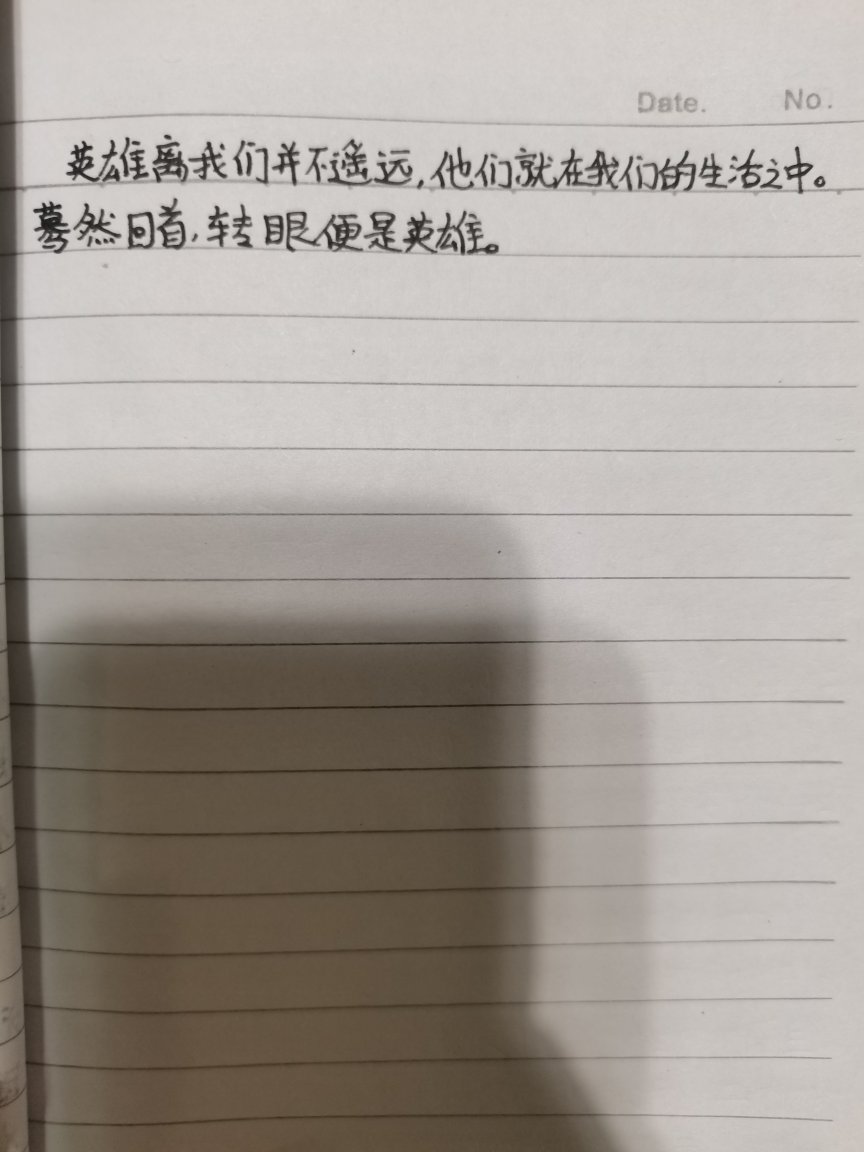 Date. No.
英雄离我们并不遥远,他们就在我们的生活之中。
蓦然回首,转眼便是英雄。